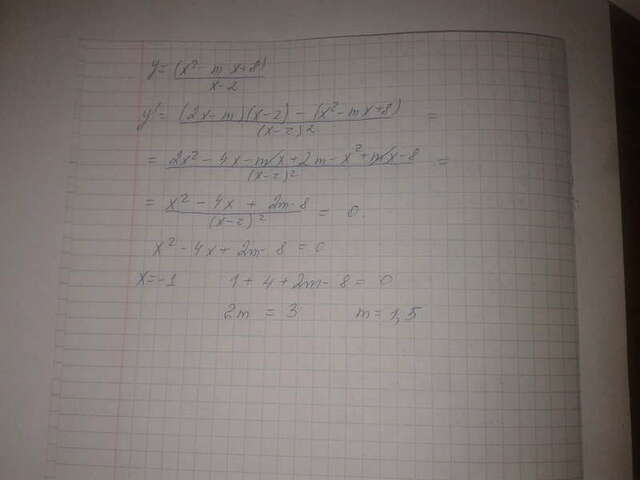 y = (x² - mx+8) / x-2
y' = (2x-m)(x-2) - (x²-mx+8) / (x-2)² =
= 2x² - 4x - mx + 2m - x² + mx - 8 / (x-2)² =
= x² - 4x + 2m-8 / (x-2)² = 0.
x² - 4x + 2m - 8 = 0
x=-1 1 + 4 + 2m - 8 = 0
2m = 3 m = 1,5